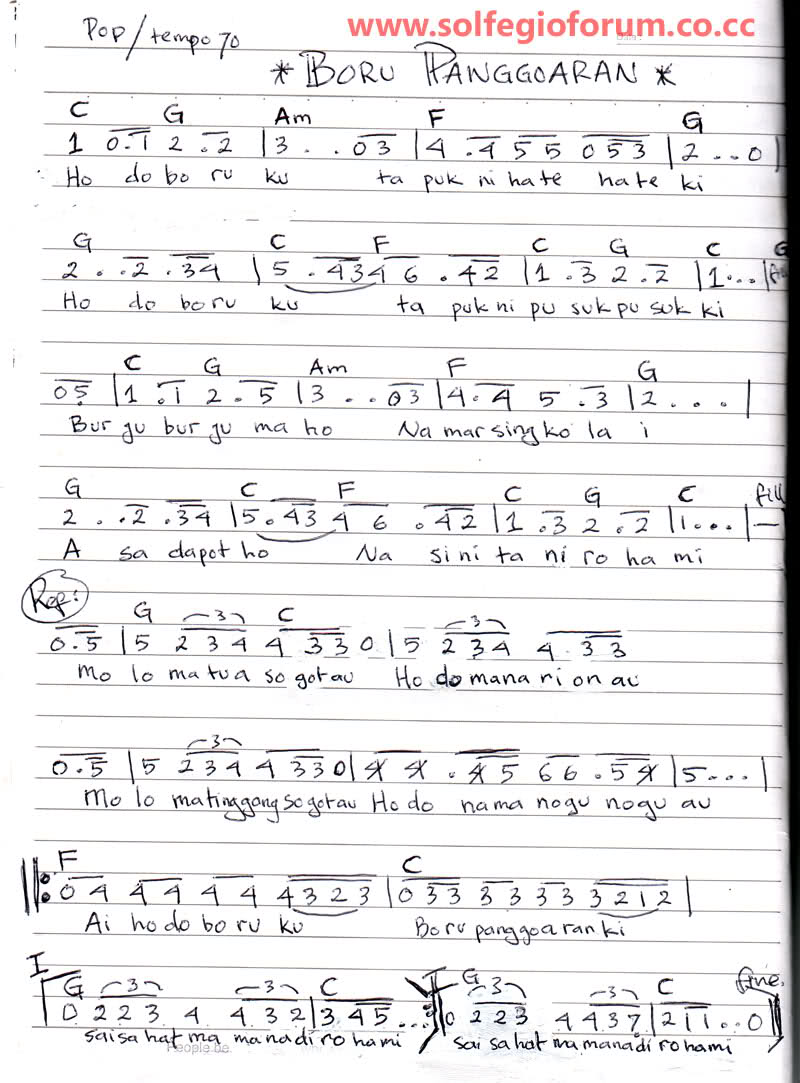 www.solfegioforum.co.cc
Pop/tempo 70
* BORU PANGGOARAN *
C G Am F G
1 0.1 2 .2 |3 . .03 |4 .4 5 5 053 |2...0|
Ho do bo ru ku ta puk ni hate hate ki
G C F C G C G
2 . .2 .34 |5 .43 4 6 .42 |1 .3 2 .2 |1...|
Ho do boru ku ta puk ni pu suk pu suk ki
C G Am F G
05 |1 .1 2 .5 |3 ..03 |4.4 5 .3 |2 . . . |
Bur gu bur gu ma ho Na mar sing ko la i
G C F C G C fill
2 . .2 .34 |5.43 4 6 .42 |1 .3 2 .2 |1...|—
A sa dapot ho Na sini ta ni ro ha mi
Ref:
G 3 C 3
0.5 |5 234 4 330 |5 234 4.33
Mo lo matua so gotau Ho do mana ri on au
3
0.5 |5 234 4330|4 4 .45 66 .54 |5...|
Mo lo matinggang sogotau Ho do nama nogu nogu au
F C
||: 04 44 44 4323 |033 33 33 3212|
Ai ho do bo ru ku Boru panggoaran ki
I G 3 3 C II G 3 3 C fine.
0 223 4 432|345...:|| 0 223 4 437|211..0||
sai sa hat ma mana di ro hami sai sahat ma mana di rohami
People be.